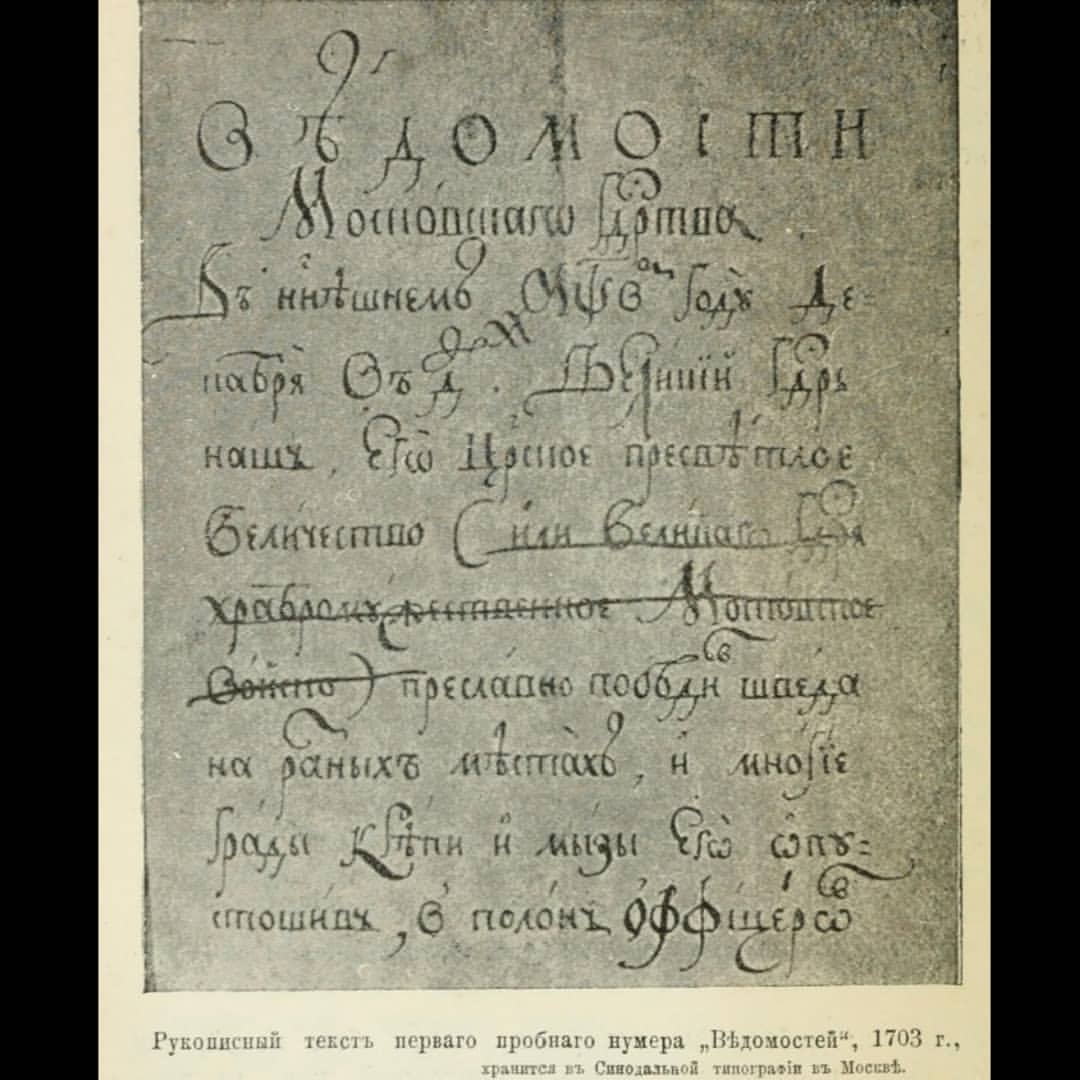 ВѢДОМОСТИ
Московскагѡ Гдⷭ҇рства
Въ нн҃ѣшнемъ ҂аѱв году Де=
кабря въ д день. Великїй Гдⷭ҇рь
нашъ, Егѡ Црⷭ҇кое пресвѣтлое
Величество (или Великагѡ Гдⷭ҇ря
храброму жественное Московское
войско) преславно побѣдивъ шведа
на разныхъ мѣстахъ, и многїе
грады крѣпки и мызы Егѡ ѡпу=
стошивъ, в полонъ офѳицеровъ
Рукописный текстъ перваго пробнаго нумера „Вѣдомостей“, 1703 г.,
хранится въ Синодальной типографіи въ Москвѣ.